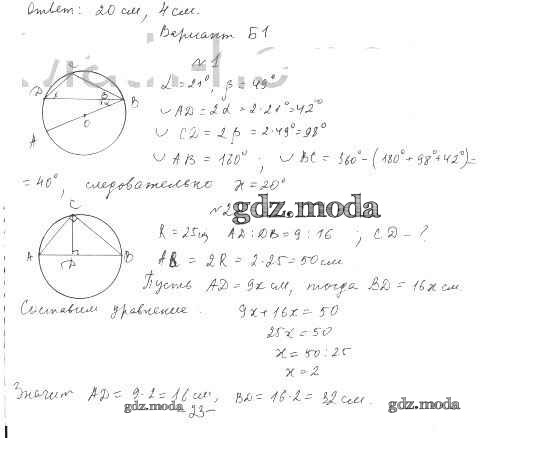 Ответ: 20 см, 4 см.
Вариант Б1
№1
α = 21°, β = 49°
◡AD = 2α = 2·21° = 42°
◡CD = 2β = 2·49° = 98°
◡AB = 180° ; ◡BC = 360° - (180° + 98° + 42°) =
= 40°, следовательно x = 20°
№2
gdz.moda
R = 25см AD:DB = 9:16 ; CD - ?
AB = 2R = 2·25 = 50 см
Пусть AD = 9x см, тогда BD = 16x см
Составим уравнение. 9x + 16x = 50
25x = 50
x = 50:25
x = 2
Значит AD = 9·2 = 16 см, BD = 16·2 = 32 см.
gdz.moda
23
gdz.moda